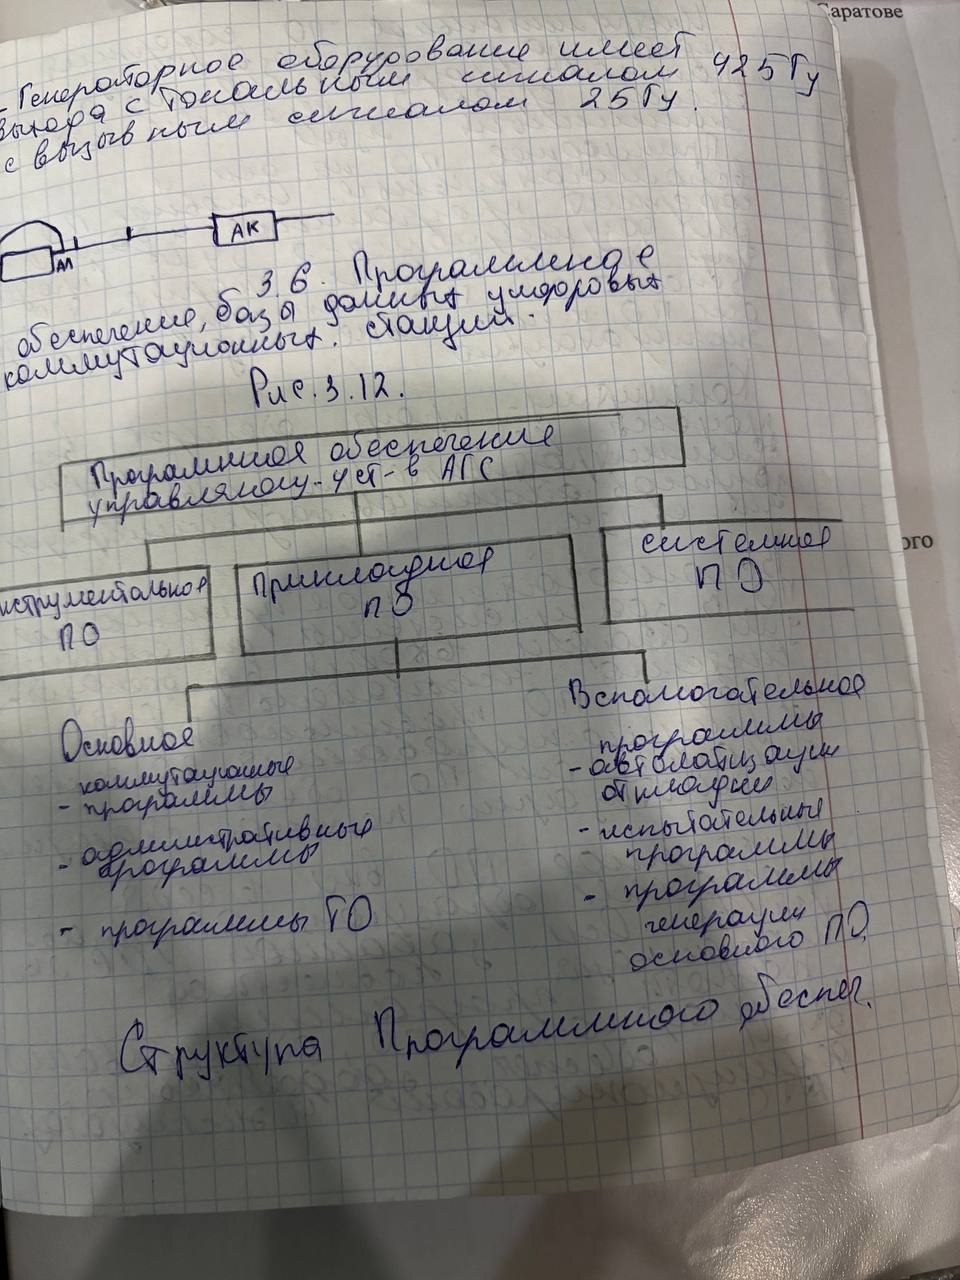 Саратове
- Генераторное оборудование имеет
выхода с тональным сигналом 425Гц
с вызывным сигналом 25Гц.
АК
АЛ
3.6. Программное
обеспечение, базы данных цифровых
коммутационных. станций.
Рис.3.12.
Программное обеспечение
управляющ. уст-в АТС
нструментальное
ПО
Прикладное
ПО
системное
ПО
ого
Основное
коммутационные
- программы
- административные
программы
- программы ТО
Вспомогательное
программы
- автоматизации
отладки
- испытательные
программы
- программы
генерации
основного ПО,
Структура Программного обеспеч.